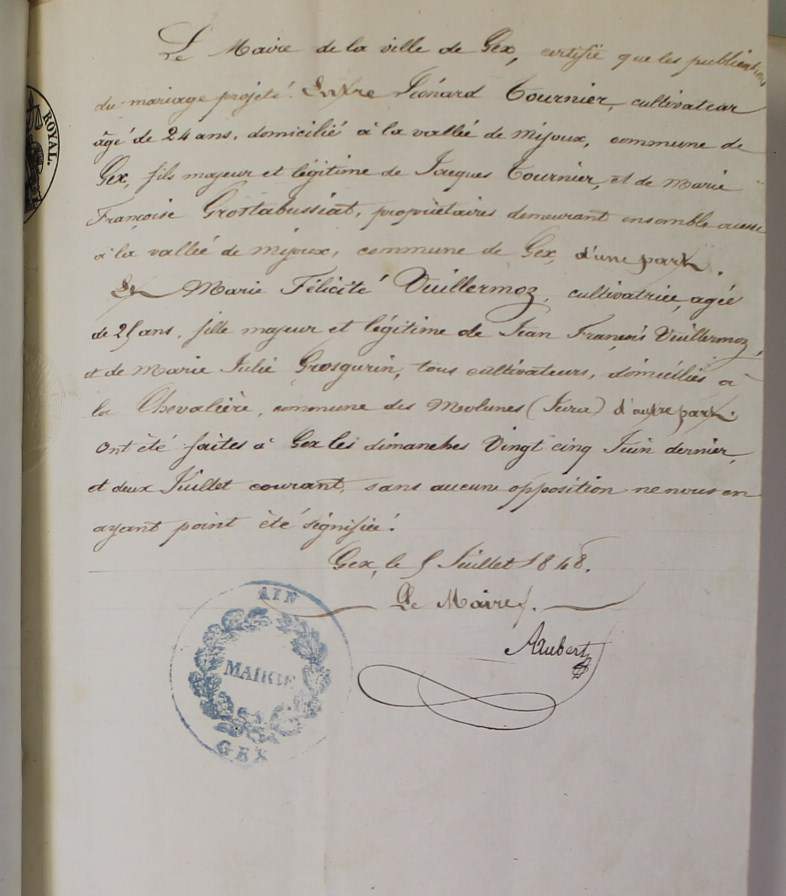 Le Maire de la ville de Gex, certifie que les publications
du mariage projeté. Entre Léonard Tournier, cultivateur
âgé de 24 ans, domicilié à la vallée de mijoux, commune de
Gex, fils majeur et légitime de Jacques Tournier, et de Marie
Françoise Grostabussiat, propriétaires demeurant ensemble aussi
à la vallée de mijoux, commune de Gex, d'une part.
Et Marie Félicité Vuillermoz, cultivatrice, agée
de 25 ans, fille majeur et légitime de Jean François Vuillermoz,
et de Marie Julie Grosgurin, tous cultivateurs, domiciliés à
la Chevalière, commune des Molunes (Jura) d'autre part.
Ont été faites à Gex les dimanches Vingt cinq Juin dernier,
et deux Juillet courant, sans aucune opposition ne nous en
ayant point été signifiée.
Gex, le 5 Juillet 1848.
Le Maire.
Aubert
ROYAL.
AIN
MAIRIE
GEX